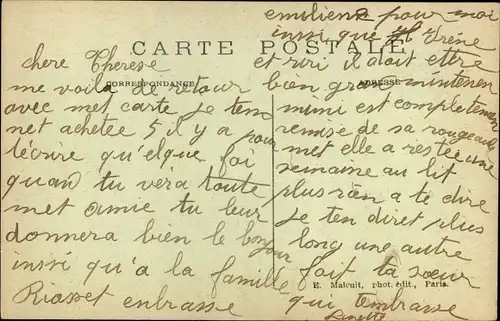 CARTE POSTALE
CORRESPONDANCE
ADRESSE
chere Therese
me voila de retour
avec met carte je ten
net achetee 5 il y a pour
técrire qu'elque foi
quand tu vera toute
met amie tu leur
donnera bien le bonjour
inssi qu'a la famille
Riasset enbrasse
emiliene pour moi
inssi que Irène
et riri il doit ettre
bien gros mintenen
mimi est completemen
remise de sa rougeaule
met elle a restée une
semaine au lit
plus rien a te dire
je ten diret plus
long une autre
foit ta sœur
qui tembrasse
Linette
E. Malcuit, phot. édit., Paris.